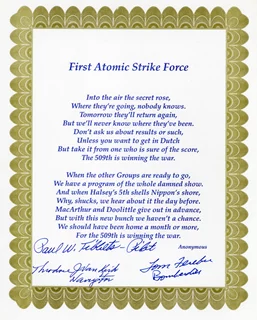 First Atomic Strike Force
Into the air the secret rose,
Where they're going, nobody knows.
Tomorrow they'll return again,
But we'll never know where they've been.
Don't ask us about results or such,
Unless you want to get in Dutch
But take it from one who is sure of the score,
The 509th is winning the war.
When the other Groups are ready to go,
We have a program of the whole damned show.
And when Halsey's 5th shells Nippon's shore,
Why, shucks, we hear about it the day before.
MacArthur and Doolittle give out in advance,
But with this new bunch we haven't a chance.
We should have been home a month or more,
For the 509th is winning the war.
Anonymous
Paul W. Tibbets - Pilot
Theodore J. Van Kirk
Navigator
Tom Ferebee
Bombardier